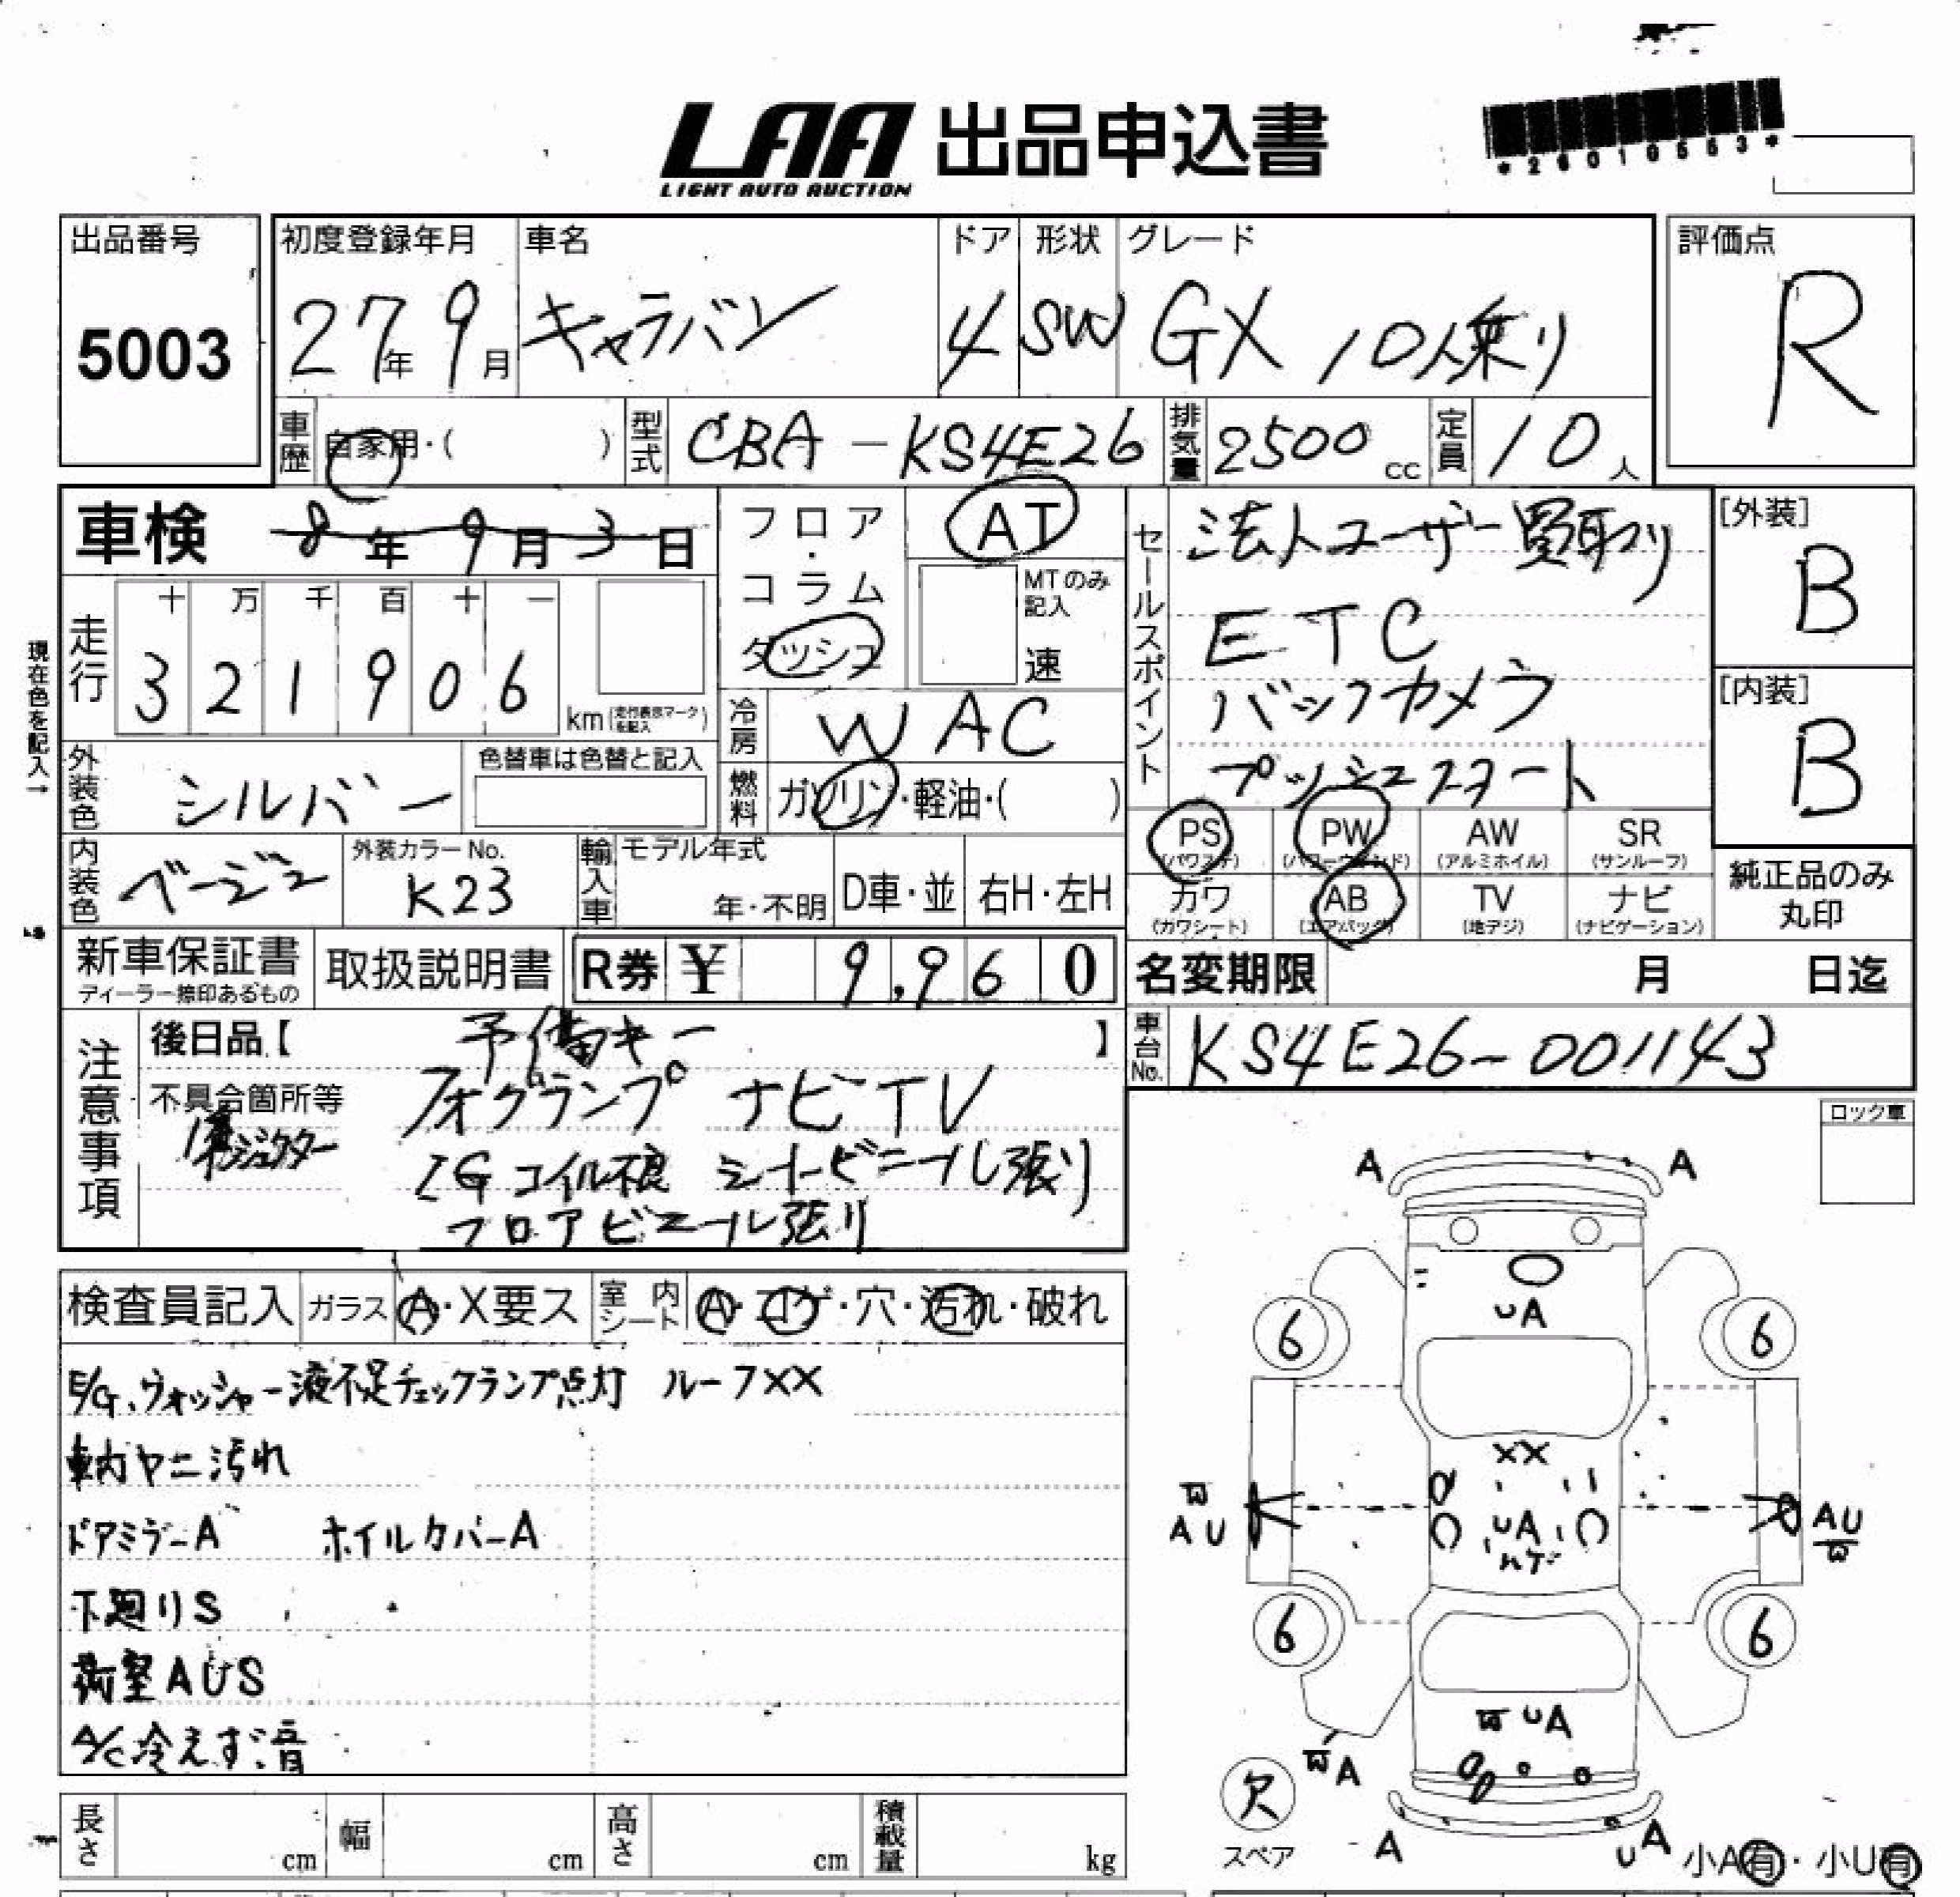 LAA 出品申込書
LIGHT AUTO AUCTION
*26010553*
出品番号
5003
初度登録年月
27年 9月
車名
キャラバン
ドア
4
形状
SW
グレード
GX 10人乗り
評価点
R
車歴 自家用・( )
型式 CBA-KS4E26
排気量 2500 cc
定員 10 人
車検 8年 9月 3日
フロア・コラム
ダッシュ
AT
MTのみ記入
速
セールスポイント
法人ユーザー買取り
ETC
バックカメラ
プッシュスタート
[外装]
B
[内装]
B
現在色を記入→
走行
十 万 千 百 十 一
3 2 1 9 0 6
km(走行表示マークを記入)
冷房 W AC
燃料 ガソリン・軽油・( )
外装色 シルバー
色替車は色替と記入
内装色 ベージュ
外装カラーNo.
K23
輸入車
モデル年式
年・不明
D車・並
右H・左H
PS (パワステ)
PW (パワーウインド)
AW (アルミホイル)
SR (サンルーフ)
カワ (カワシート)
AB (エアバッグ)
TV (地デジ)
ナビ (ナビゲーション)
純正品のみ
丸印
新車保証書
ディーラー捺印あるもの
取扱説明書
R券 ¥ 9,960
名変期限 月 日迄
車台No. KS4E26-001143
注意事項
後日品【 予備キー 】
不具合箇所等
フォグランプ ナビTV
IGコイル不良 シートビニール張り
フロアビニール張り
ロック車
検査員記入
ガラス A・X要ス
室内シート A・コゲ・穴・汚れ・破れ
E/G、ウォッシャー液不足チェックランプ点灯 ルーフXX
車内ヤニ汚れ
ドアミラーA ホイルカバーA
下廻りS
荷室AUS
A/C冷えず、音
長さ cm
幅 cm
高さ cm
積載量 kg
A A
UA
6 6
XX
W
AU
UA
ハゲ
AU
W
6 6
W UA
WA
欠
スペア
A
UA
小A有・小U有